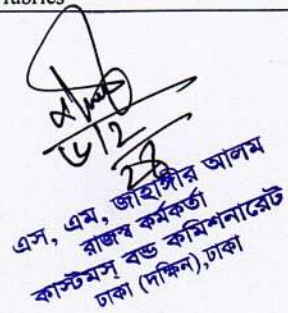 fabrics
এস, এম, জাহাঙ্গীর আলম
রাজস্ব কর্মকর্তা
কাস্টমস্ বন্ড কমিশনারেট
ঢাকা (দক্ষিন),ঢাকা